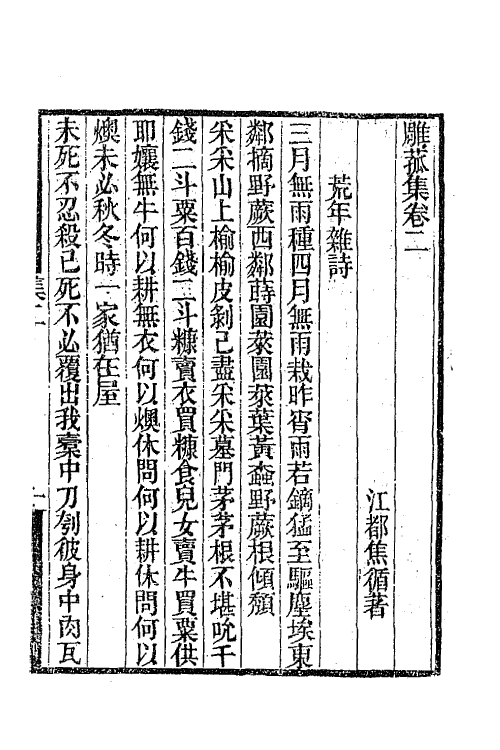 雕菰集卷二
江都焦循著
荒年雜詩
三月無雨種四月無雨栽昨宵雨若鏑猛至驅塵埃東
鄰摘野蕨西鄰蒔園萊園萊葉黃螙野蕨根傾頹
采采山上榆榆皮剝已盡采采墓門茅茅根不堪吮千
錢二斗粟百錢二斗糠賣衣買糠食兒女賣牛買粟供
耶孃無牛何以耕無衣何以燠休問何以耕休問何以
燠未必秋冬時一家猶在屋
未死不忍殺已死不必覆出我橐中刀刳彼身中肉瓦
集二
一